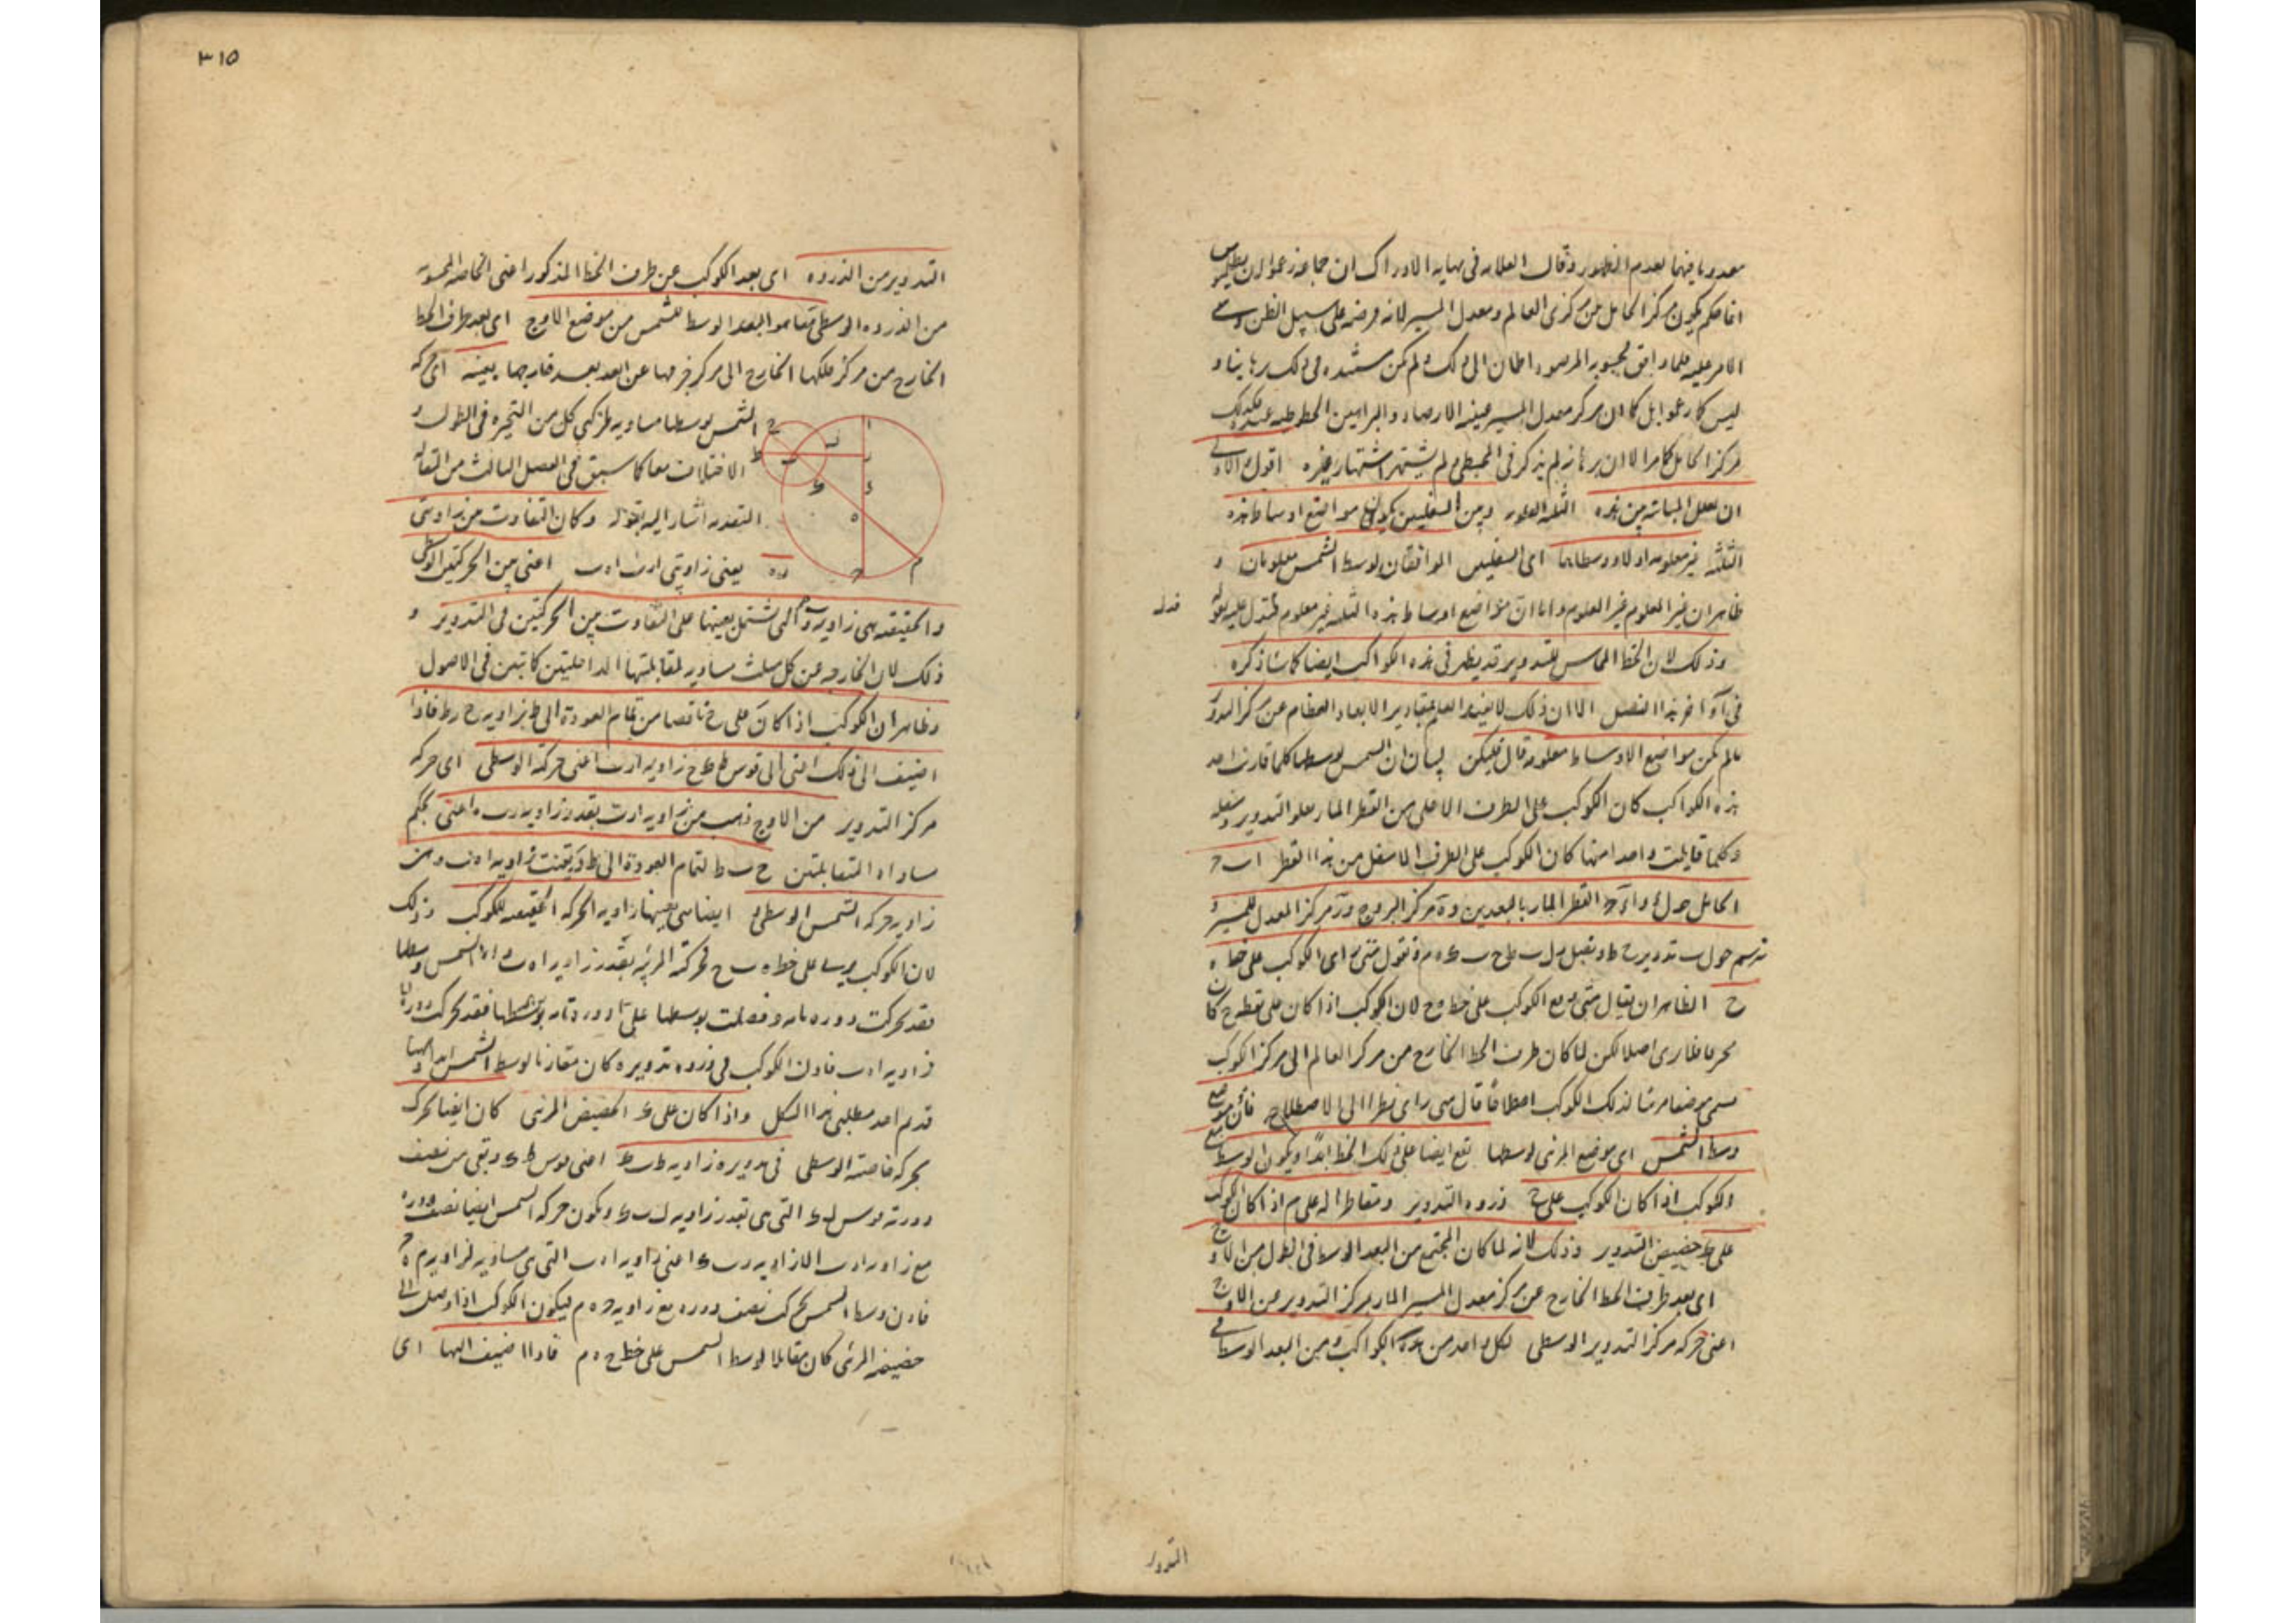 معدوما فيهما لعدم الظهور وقال العلامه فى نهايه الادراك ان جماعه زعموا ان بطلميوس
انما حكم بكون مركز الحامل بين مركزى العالم ومعدل المسير لانه فرضه على سبيل الظن
الامر عليه فلما وافق المرصود اطمان الى ذلك ولم يكن مستنده فى ذلك برهانيا و
ليس كما زعموا بل كما ان مركز معدل المسير عينه الارصاد والبراهين الخطيه عنده كذلك
مركز الحامل كما مر الا ان برهانه لم يذكر فى المجسطى ولم يشتهر اشتهار غيره اقول
ان لعل المباينه بين هذه الثلثه العلويه وبين السفليين بكون مواضع اوساط هذه
الثلثه غير معلومه اولا ووسطاهما اى السفليين الموافقان لوسط الشمس معلومان و
ظاهر ان غير المعلوم غير المعلوم واما ان مواضع اوساط هذه الثلثه غير معلوم فتدل عليه بقوله
وذلك لان الخط المماس للتدوير قد يظهر فى هذه الكواكب ايضا كما سنذكره
فى اواخر هذا الفصل الا ان ذلك لا يفيد العلم بمقادير الابعاد العظام عن مركز التدوير
ما لم يكن مواضع الاوساط معلومه قال فليكن لبيان ان الشمس بوسطها كلما قارنت احد
هذه الكواكب كان الكوكب على الطرف الاعلى من القطر المار بعلو التدوير وسفله
وكلما قابلت واحدا منها كان الكوكب على الطرف الاسفل من هذا القطر ا ب ح
الحامل حول ء و ا ء ح القطر المار بالبعدين و ه مركز البروج و ر مركز المعدل للمسير و
نرسم حول ب تدوير ح ط ونصل فنقول متى رؤى الكوكب على خط ه
ح الظاهر ان يقال متى وقع الكوكب على خط ه ح لان الكوكب اذا كان على نقطه ح كان
لكن لما كان طرف الخط الخارج من مركز العالم الى مركز الكوكب
يسمى موضعا مرئيا لذلك الكوكب اصطلاحا قال متى رؤى نظرا الى الاصطلاح فان موضع
وسط الشمس اى موضع المرئى لوسطها يقع ايضا على ذلك الخط ابدا ويكون الوسط مع
الكوكب اذا كان الكوكب على ح ذروه التدوير ومقاطرا له على م اذا كان الكوكب
على حضيض التدوير وذلك لانه لما كان المجتمع من البعد الوسط فى الطول من الاوج
اى بعد طرف الخط الخارج عن مركز معدل المسير المار بمركز التدوير من الاوج
اعنى حركه مركز التدوير الوسطى لكل واحد من هذه الكواكب ومن البعد الوسط فى
التدوير
٣١٥
التدوير من الذروه اى بعد الكوكب عن طرف الخط المذكور اعنى الخاصه المحسوبه
من الذروه الوسطى معا هو البعد الوسط للشمس من موضع الاوج اى بعد طرف الخط
الخارج من مركز فلكها الخارج الى مركز جرمها عن ابعد بعد خارجها بعينه اى حركه
الشمس بوسطها مساويه لحركتى كل من المتحيره فى الطول و
الاختلاف معا كما سبق فى الفصل الثالث من المقاله
المتقدمه اشار اليه بقوله وكان التفاوت بين زاويتى
يعنى زاويتى ا ر ب ا ه ب اعنى بين الحركتين الوسطى
والحقيقيه هى زاويه ر ب ه التى تشتمل بعينها على التفاوت بين الحركتين فى التدوير و
ذلك لان الخارجه عن كل مثلث مساويه لمقابلتيها الداخلتين كما تبين فى الاصول
وظاهر ان الكوكب اذا كان على ح ناقصا من تمام العوده الى ط بزاويه ح ب ط فاذا
اضيف الى ذلك اعنى الى قوس ط ك ح زاويه ا ر ب اعنى حركه الوسطى اى حركه
مركز التدوير من الاوج ذهب من زاويه ا ر ب بقدر زاويه ر ب ه اعنى بحكم
مساواه المتقابلتين ح ب ط لتمام العوده الى ط وبقيت زاويه ا ه ب ومن
زاويه حركه الشمس الوسطى ايضا هى بعينها زاويه الحركه الحقيقيه للكوكب وذلك
لان الكوكب على خط ه ب ح فحركته المرئيه بقدر زاويه ا ه ب واما الشمس بوسطها
فقد تحركت دوره تامه وفضلت بوسطها
زاويه ا ه ب فاذن الكوكب فى ذروه تدويره كان مقارنا لوسط الشمس ابدا
قد تم احد مطلبى هذا الشكل واذا كان على ك الحضيض المرئى كان ايضا تحرك
بحركه خاصته الوسطى فى تدويره زاويه ط ب ك اعنى قوس ط ك وبقى من نصف
دورته قوس ل ك التى هى بقدر زاويه ل ب ك وتكون حركه الشمس ايضا نصف دوره
مع زاويه ا ر ب الا زاويه ر ب ك اعنى زاويه ا ه ب التى هى مساويه لزاويه م ه ح
فاذن وسط الشمس تحرك نصف دوره مع زاويه ح ه م فيكون الكوكب اذا وصل الى
حضيضه المرئى كان مقابلا لوسط الشمس على خط ح ه م فاذا اضيف اليها اى